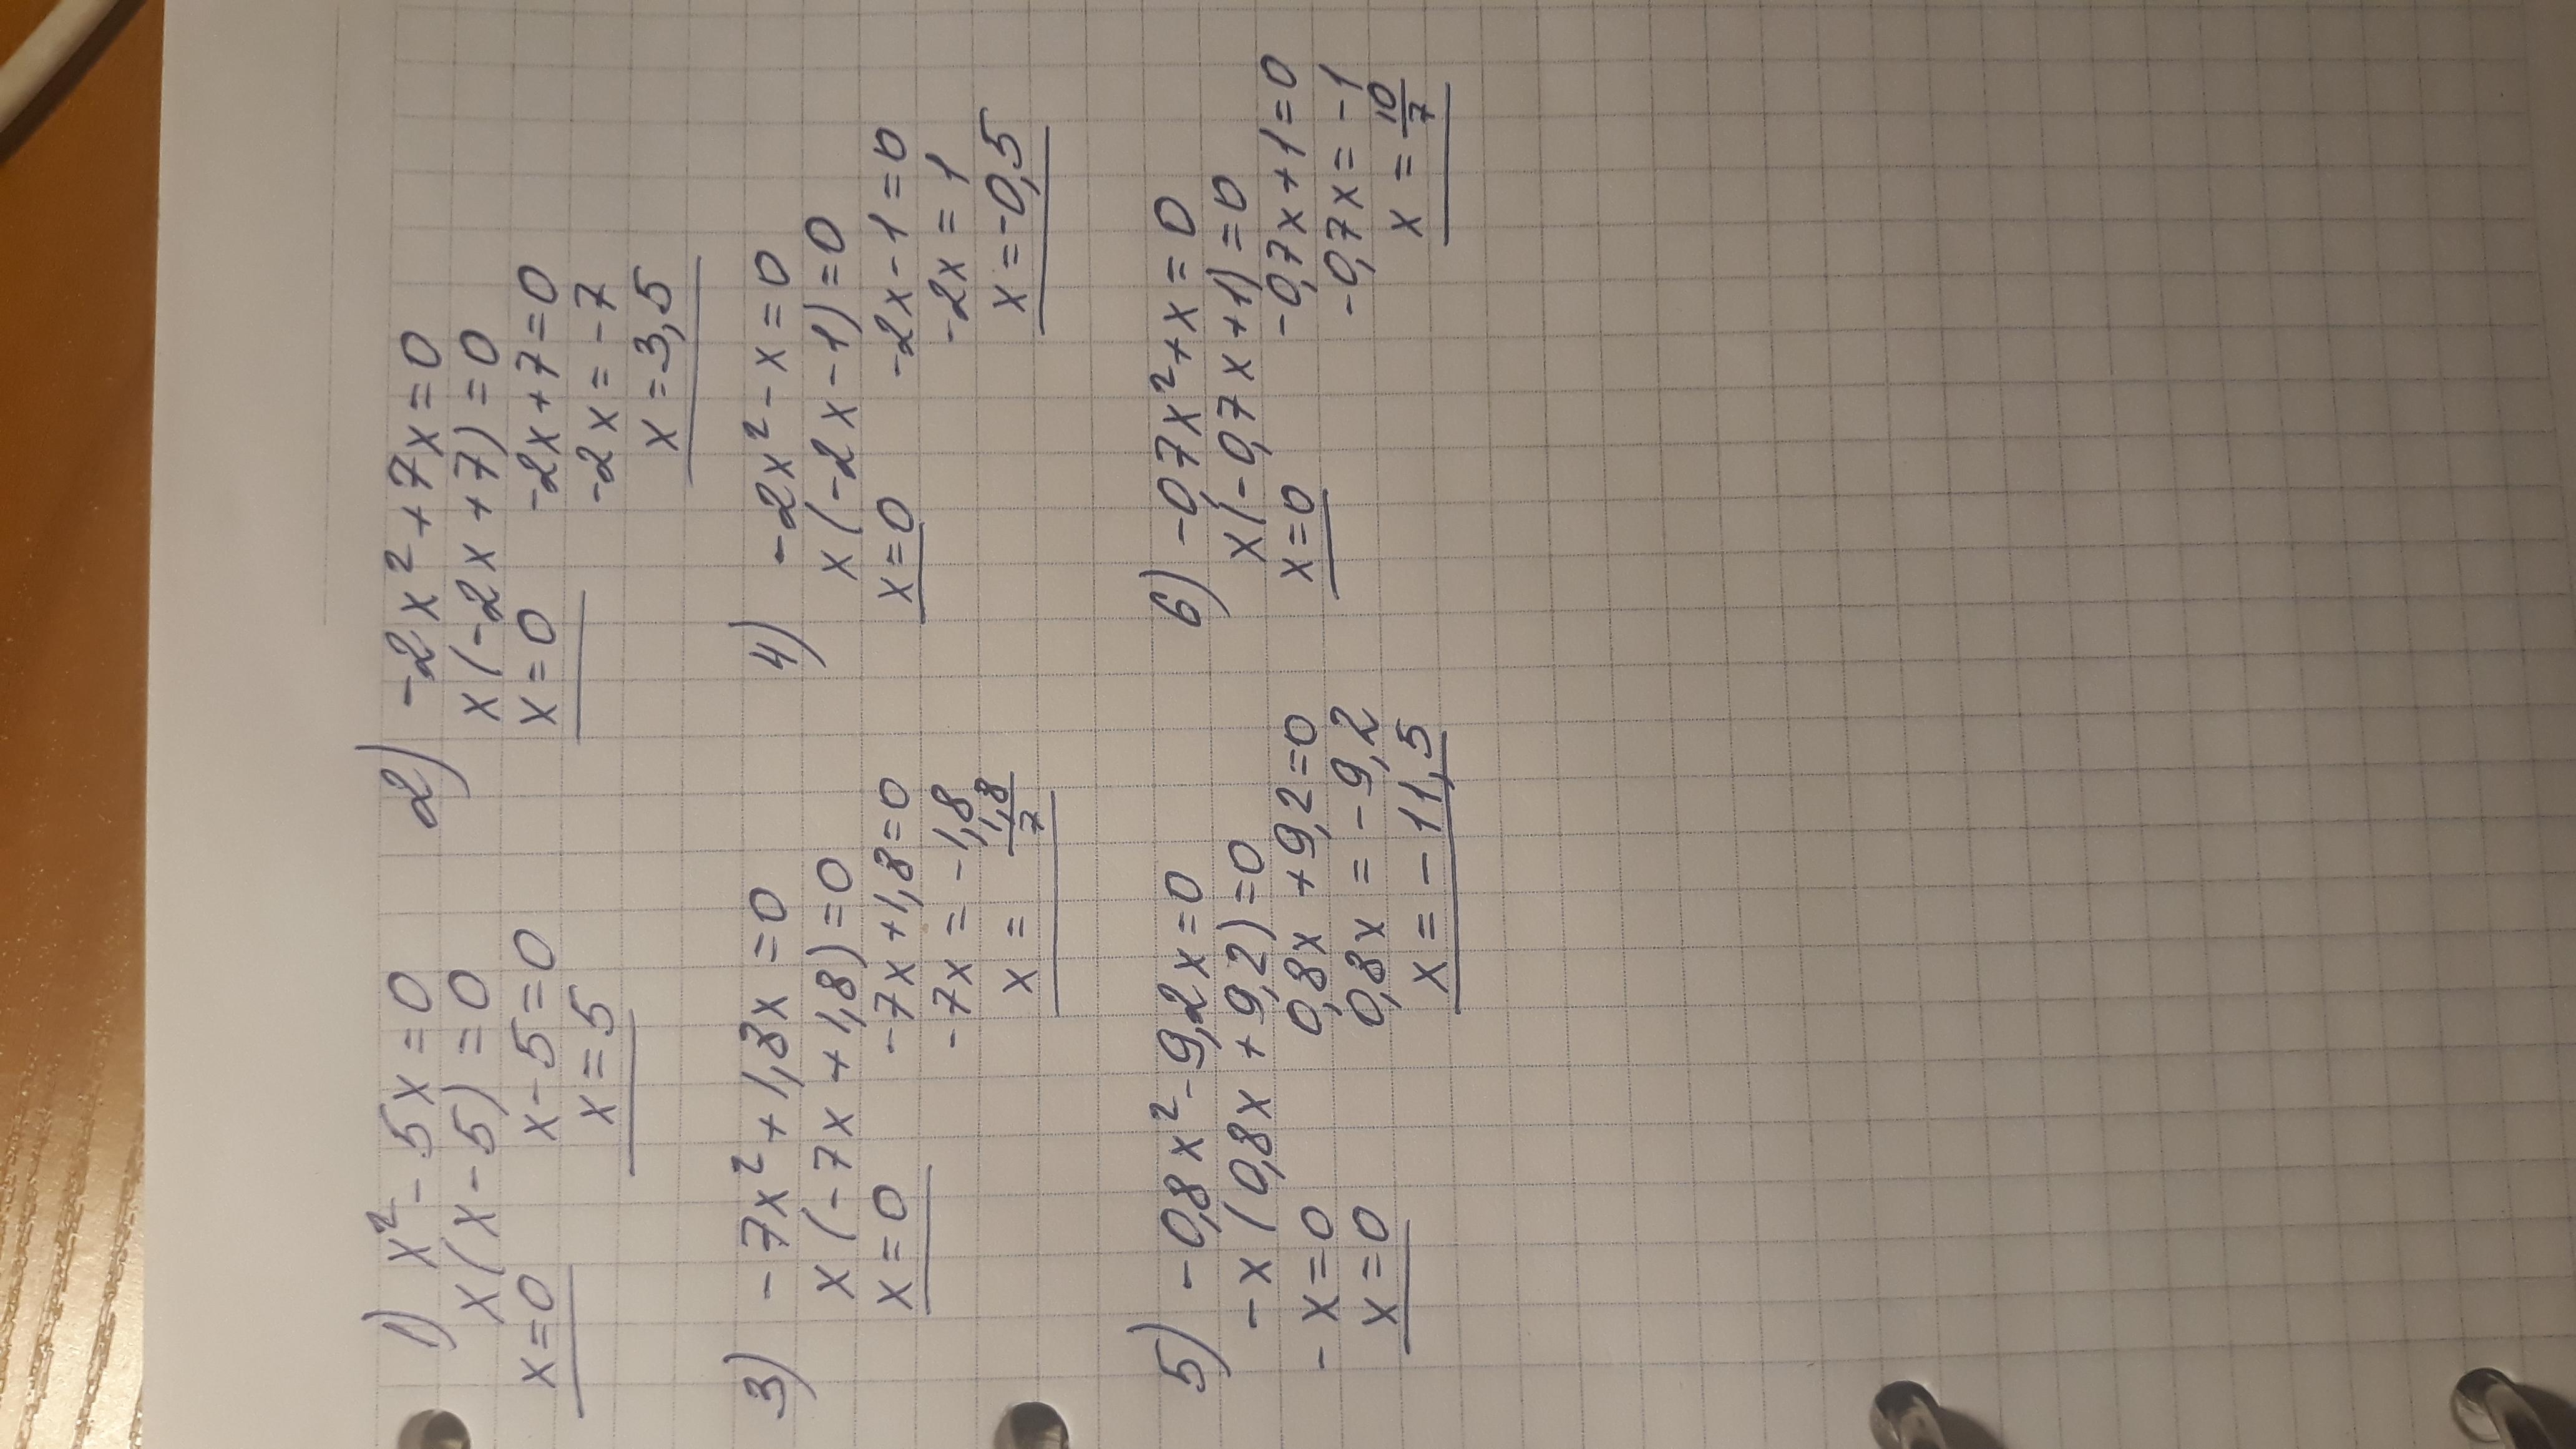 1) x² - 5x = 0
x(x - 5) = 0
x = 0 x - 5 = 0
x = 5
2) -2x² + 7x = 0
x(-2x + 7) = 0
x = 0 -2x + 7 = 0
-2x = -7
x = 3,5
3) -7x² + 1,8x = 0
x(-7x + 1,8) = 0
x = 0 -7x + 1,8 = 0
-7x = -1,8
x = 1,8/7
4) -2x² - x = 0
x(-2x - 1) = 0
x = 0 -2x - 1 = 0
-2x = 1
x = -0,5
5) -0,8x² - 9,2x = 0
-x(0,8x + 9,2) = 0
-x = 0 0,8x + 9,2 = 0
x = 0 0,8x = -9,2
x = -11,5
6) -07x² + x = 0
x(-0,7x + 1) = 0
x = 0 -0,7x + 1 = 0
-0,7x = -1
x = 10/7